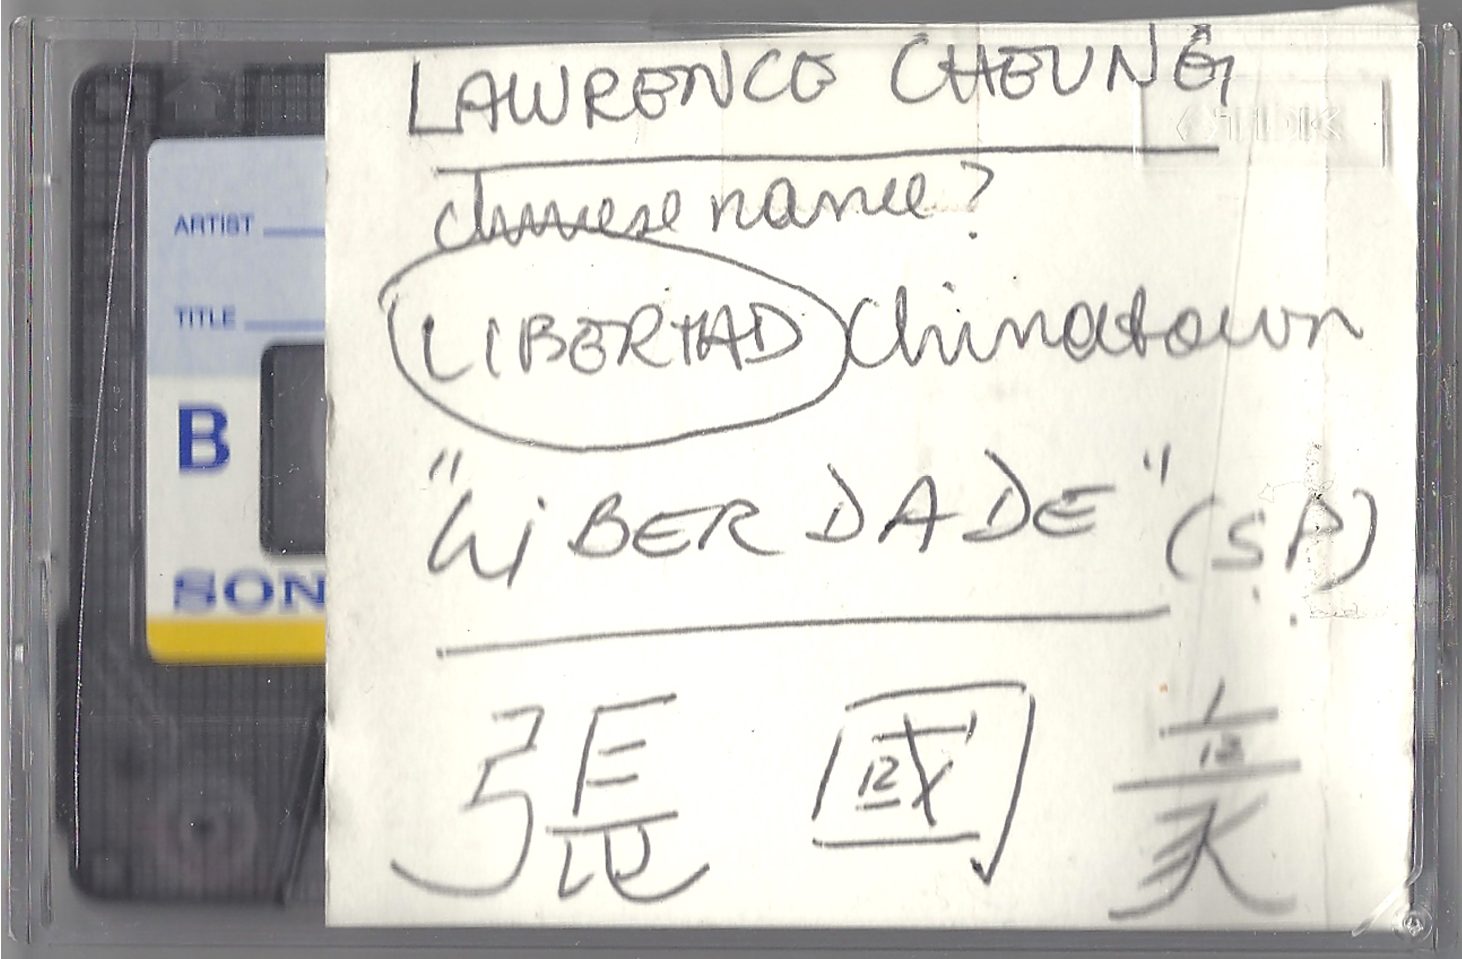 LAWRENCE CHEUNG
TDK
chinese name?
ARTIST
LIBERTAD Chinatown
TITLE
B
"LiBERDADE" (S.P.)
SON
張 國 豪